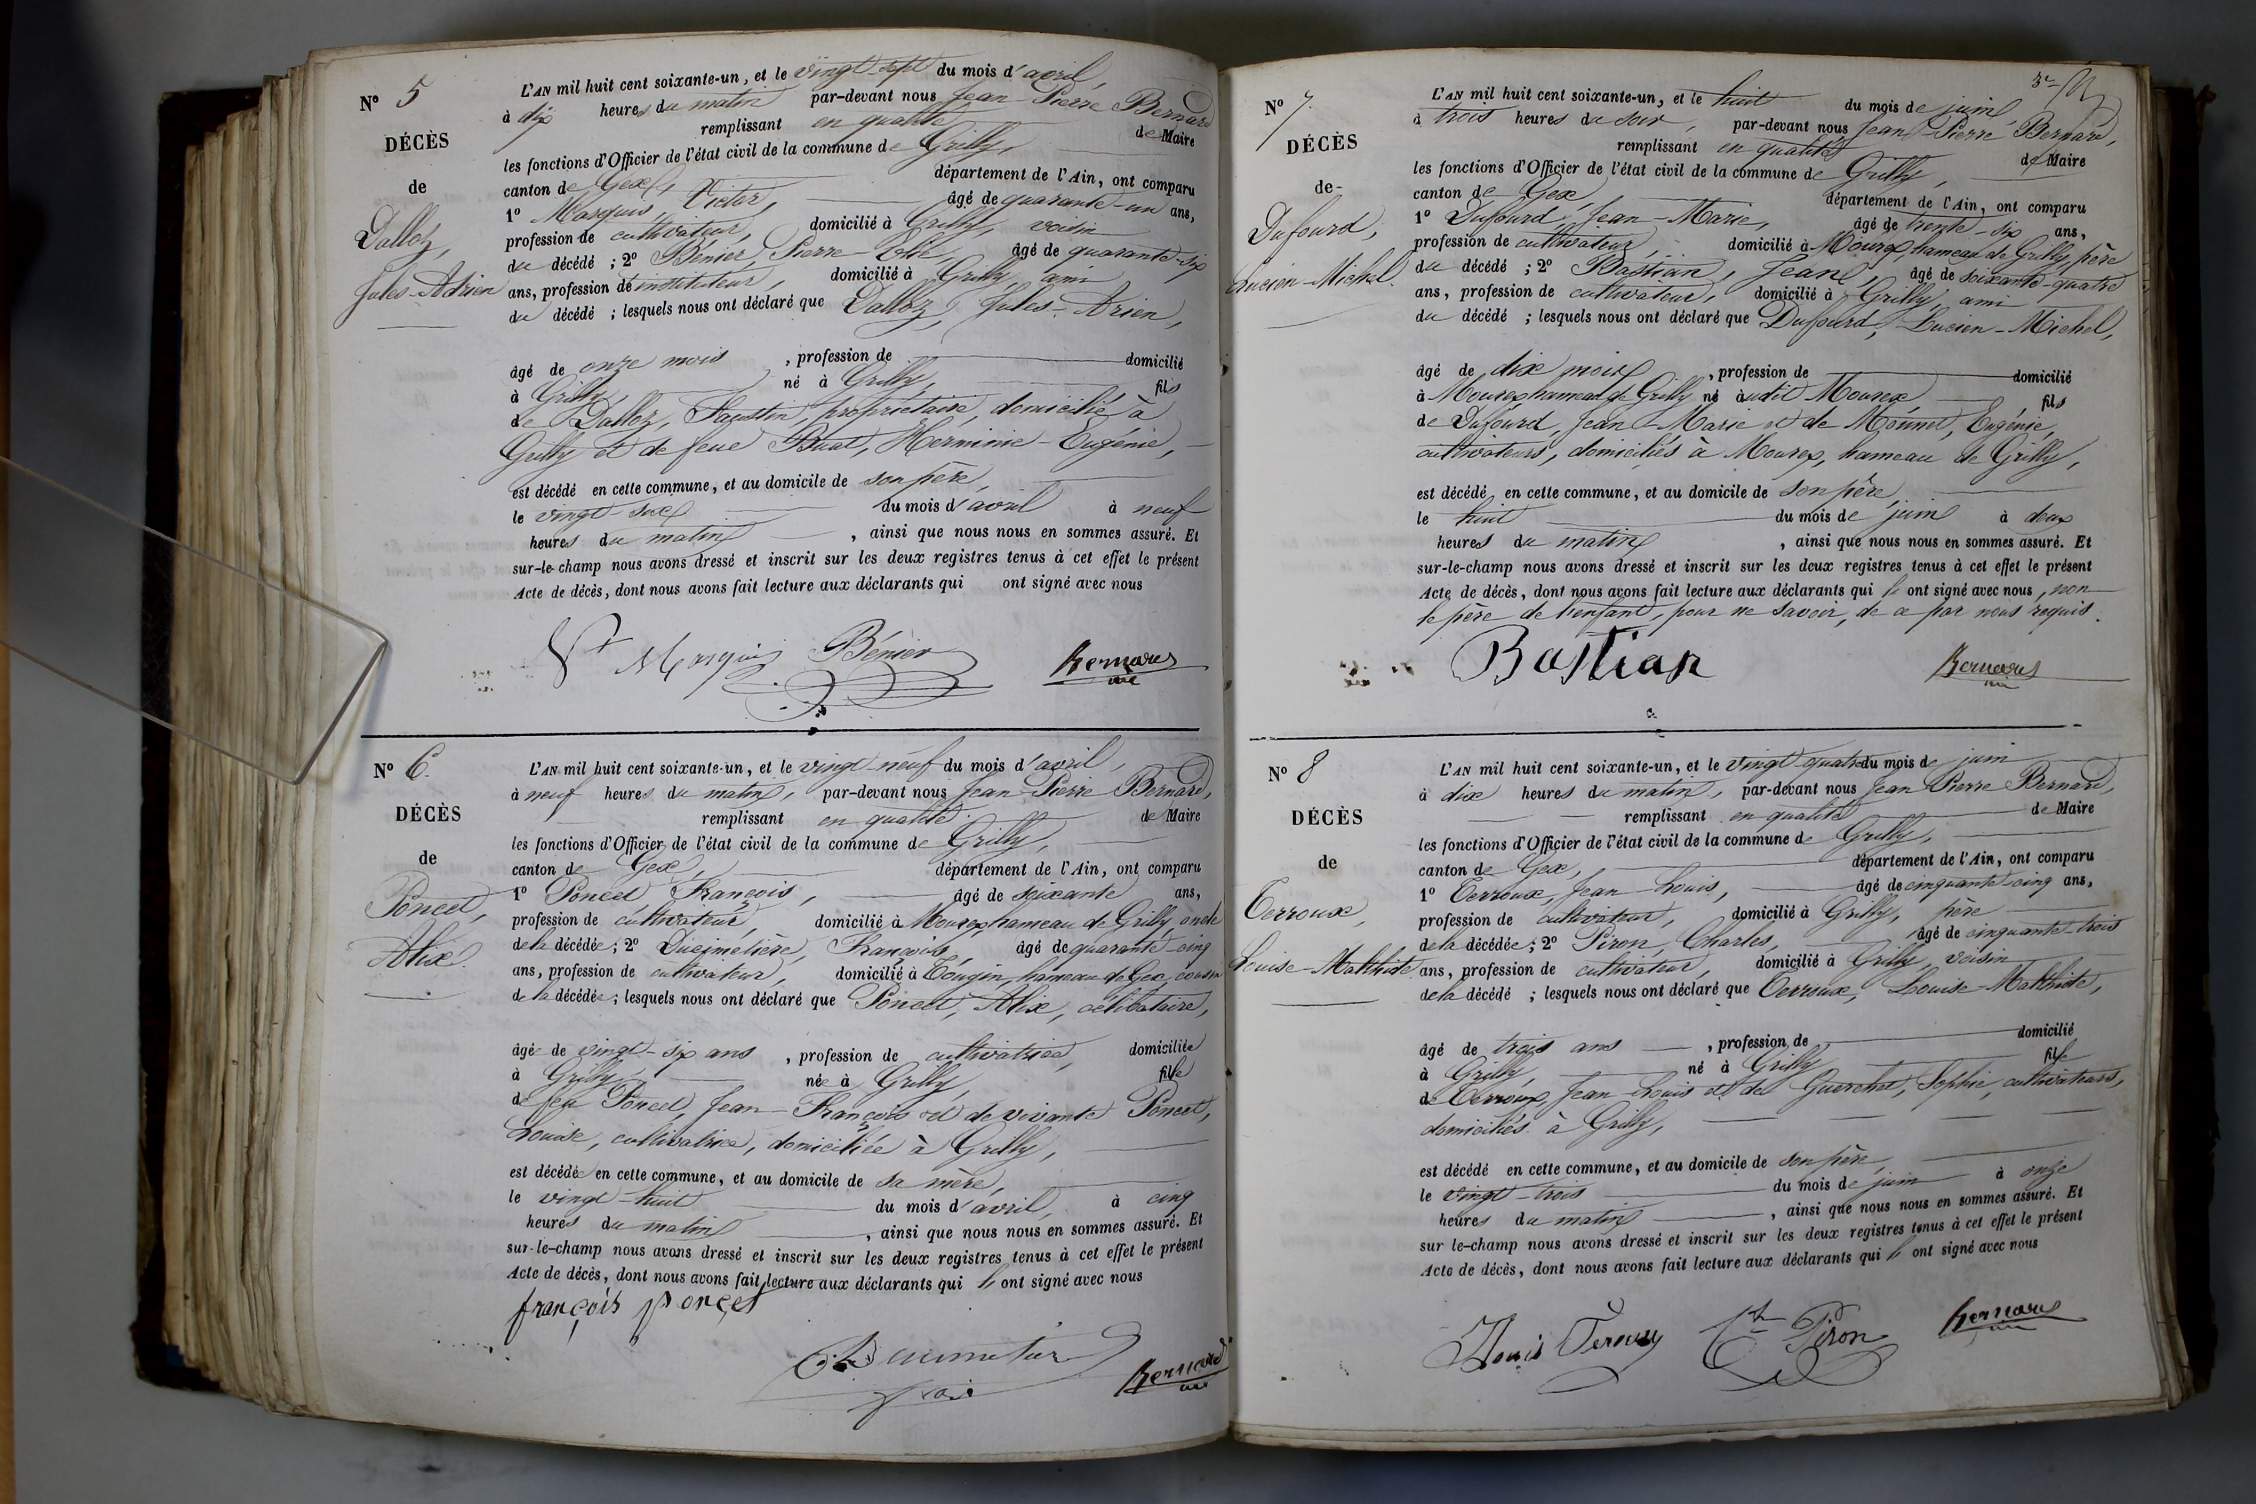 N° 5
DÉCÈS
de
Dalloz,
Jules-Adrien
L'AN mil huit cent soixante-un, et le vingt-sept du mois d'avril,
à dix heures du matin par-devant nous Jean Pierre Bernard
remplissant en qualité de Maire
les fonctions d'Officier de l'état civil de la commune de Grilly,
canton de Gex, département de l'Ain, ont comparu
1° Marquis, Victor, âgé de quarante-un ans,
profession de cultivateur, domicilié à Grilly, voisin
du décédé ; 2° Bénier, Pierre- âgé de quarante-six
ans, profession de instituteur, domicilié à Grilly, ami
du décédé ; lesquels nous ont déclaré que Dalloz, Jules-Arien,
âgé de onze mois , profession de domicilié
à Grilly, né à Grilly, fils
de Dalloz, Faustin, propriétaire, domicilié à
Grilly et de feue Buat, Herminie-Eugénie,
est décédé en cette commune, et au domicile de son père,
le vingt-six du mois d'avril à neuf
heures du matin , ainsi que nous nous en sommes assuré. Et
sur-le-champ nous avons dressé et inscrit sur les deux registres tenus à cet effet le présent
Acte de décès, dont nous avons fait lecture aux déclarants qui ont signé avec nous
Vr Marquis Bénier Bernard
me
N° 6
DÉCÈS
de
Poncet,
Alix.
L'AN mil huit cent soixante-un, et le vingt-neuf du mois d'avril,
à neuf heures du matin, par-devant nous Jean Pierre Bernard,
remplissant en qualité de Maire
les fonctions d'Officier de l'état civil de la commune de Grilly,
canton de Gex, département de l'Ain, ont comparu
1° Poncet François, âgé de soixante ans,
profession de cultivateur, domicilié à Mourex, hameau de Grilly, oncle
de la décédée ; 2° Ducimetière, François, âgé de quarante-cinq
ans, profession de cultivateur, domicilié à Tougin, hameau de Gex, cousin
de la décédée ; lesquels nous ont déclaré que Poncet, Alix, célibataire,
âgée de vingt-six ans , profession de cultivatrice, domiciliée
à Grilly, née à Grilly, fille
de feu Poncet, Jean-François et de vivante Poncet,
Louise, cultivatrice, domiciliée à Grilly,
est décédée en cette commune, et au domicile de sa mère,
le vingt-huit du mois d'avril, à cinq
heures du matin , ainsi que nous nous en sommes assuré. Et
sur-le-champ nous avons dressé et inscrit sur les deux registres tenus à cet effet le présent
Acte de décès, dont nous avons fait lecture aux déclarants qui ont signé avec nous
françois poncet
Bernard
me
N° 7.
DÉCÈS
de
Dufourd,
Lucien-Michel.
L'AN mil huit cent soixante-un, et le huit du mois de juin,
à trois heures du soir, par-devant nous Jean-Pierre Bernard,
remplissant en qualité de Maire
les fonctions d'Officier de l'état civil de la commune de Grilly,
canton de Gex, département de l'Ain, ont comparu
1° Dufourd, Jean-Marie, âgé de trente-six ans,
profession de cultivateur, domicilié à Mourex, hameau de Grilly, père
du décédé ; 2° Bastian, Jean, âgé de soixante-quatre
ans, profession de cultivateur, domicilié à Grilly, ami
du décédé ; lesquels nous ont déclaré que Dufourd, Lucien-Michel,
âgé de dix mois , profession de domicilié
à Mourex hameau de Grilly né audit Mourex fils
de Dufourd, Jean-Marie et de Mounet, Eugénie,
cultivateurs, domiciliés à Mourex, hameau de Grilly,
est décédé en cette commune, et au domicile de son père,
le huit du mois de juin à deux
heures du matin , ainsi que nous nous en sommes assuré. Et
sur-le-champ nous avons dressé et inscrit sur les deux registres tenus à cet effet le présent
Acte de décès, dont nous avons fait lecture aux déclarants qui ont signé avec nous, non
le père de l'enfant, pour ne savoir, de ce par nous requis.
Bastian Bernard
me
N° 8
DÉCÈS
de
Terroux,
Louise-Mathilde
L'AN mil huit cent soixante-un, et le vingt-quatre du mois de juin
à dix heures du matin, par-devant nous Jean Pierre Bernard,
remplissant en qualité de Maire
les fonctions d'Officier de l'état civil de la commune de Grilly,
canton de Gex, département de l'Ain, ont comparu
1° Terroux, Jean-Louis, âgé de cinquante-cinq ans,
profession de cultivateur, domicilié à Grilly, père
de la décédée ; 2° Piron, Charles, âgé de cinquante-trois
ans, profession de cultivateur, domicilié à Grilly, voisin
de la décédé ; lesquels nous ont déclaré que Terroux, Louise-Mathilde,
âgé de trois ans , profession de domicilié
à Grilly, né à Grilly fille
de Terroux, Jean-Louis et de Guerchet, Sophie, cultivateurs,
domiciliés à Grilly,
est décédé en cette commune, et au domicile de son père,
le vingt-trois du mois de juin à onze
heures du matin , ainsi que nous nous en sommes assuré. Et
sur le-champ nous avons dressé et inscrit sur les deux registres tenus à cet effet le présent
Acte de décès, dont nous avons fait lecture aux déclarants qui ont signé avec nous
Louis Ch Piron Bernard
me